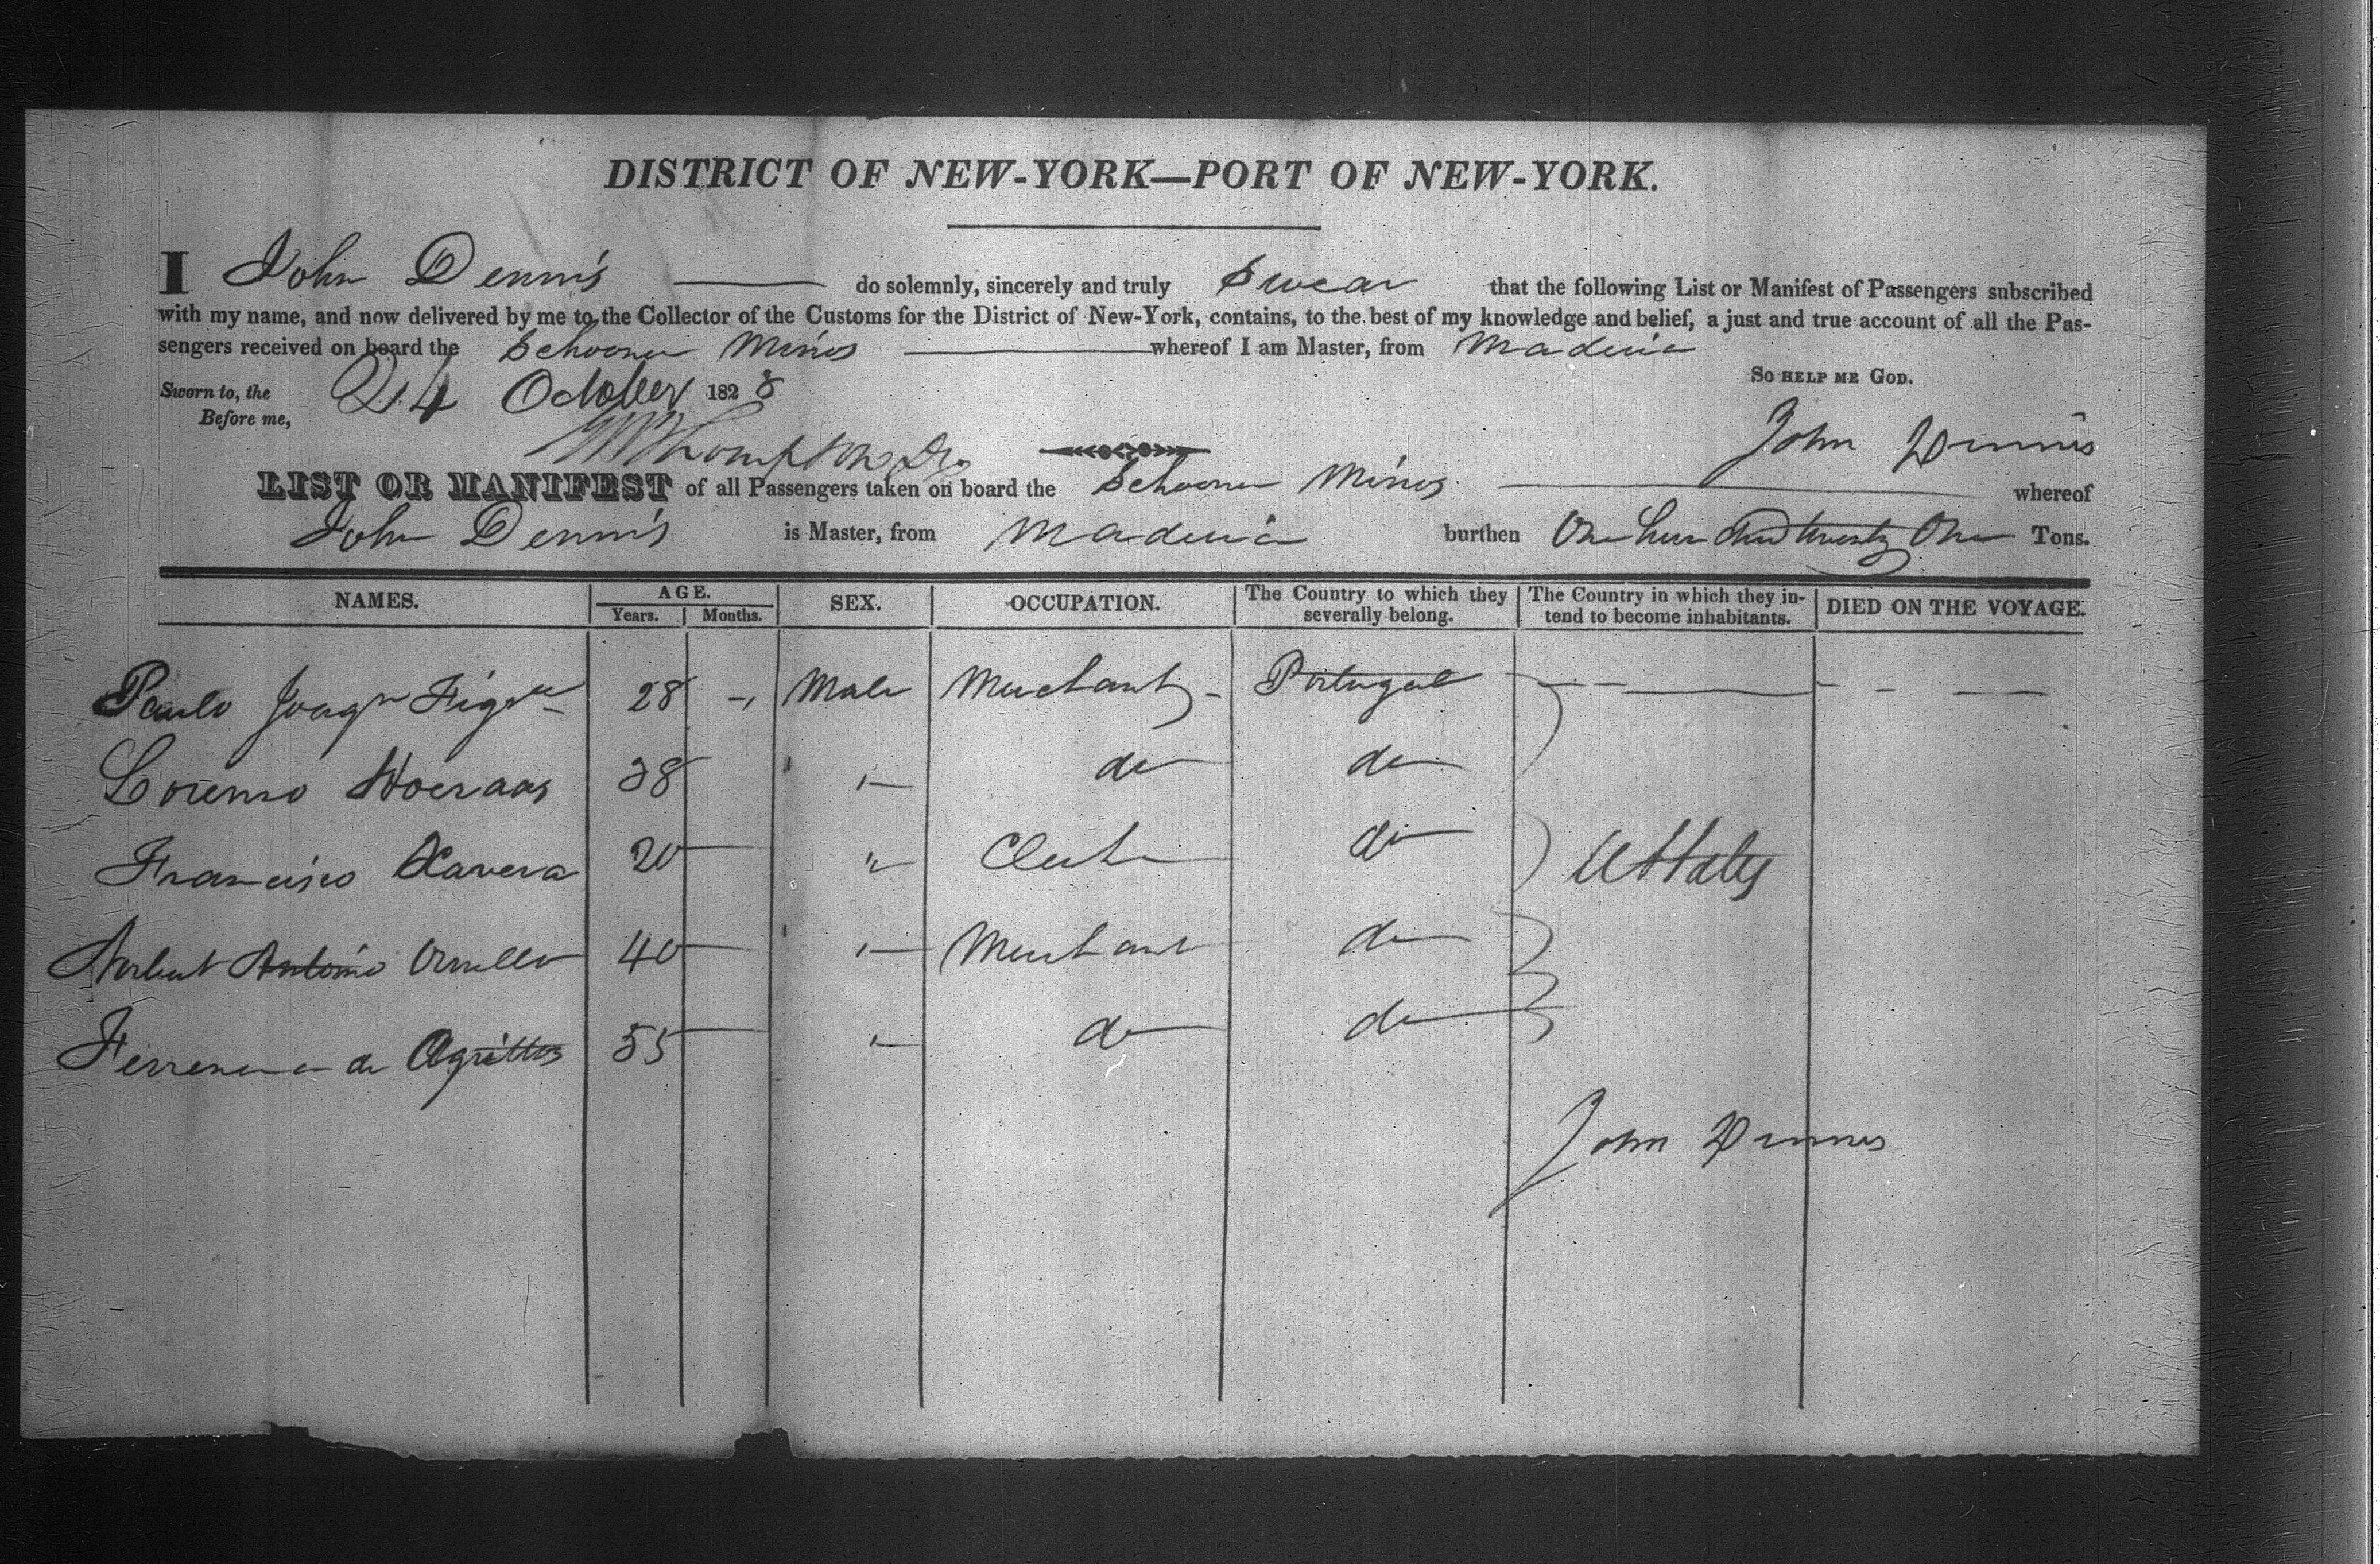 DISTRICT OF NEW-YORK—PORT OF NEW-YORK.
I John Dennis do solemnly, sincerely and truly Swear that the following List or Manifest of Passengers subscribed
with my name, and now delivered by me to the Collector of the Customs for the District of New-York, contains, to the best of my knowledge and belief, a just and true account of all the Pas-
sengers received on board the Schooner Minos whereof I am Master, from Madeira
SO HELP ME GOD.
Sworn to, the 24 October 1828
Before me,
John Dennis
LIST OR MANIFEST of all Passengers taken on board the Schooner Minos whereof
John Dennis is Master, from Madeira burthen One hundred twenty One Tons.
NAMES. AGE. SEX. OCCUPATION. The Country to which they severally belong. The Country in which they in-tend to become inhabitants. DIED ON THE VOYAGE.
Years. Months.
Paulo Joaqn 28 Male Merchant Portugal
Lorenso 38 " do do
Francisco Xavera 20 " Clerk do U States
Antonio 40 " Merchant do
de 55 " do do
John Dennis